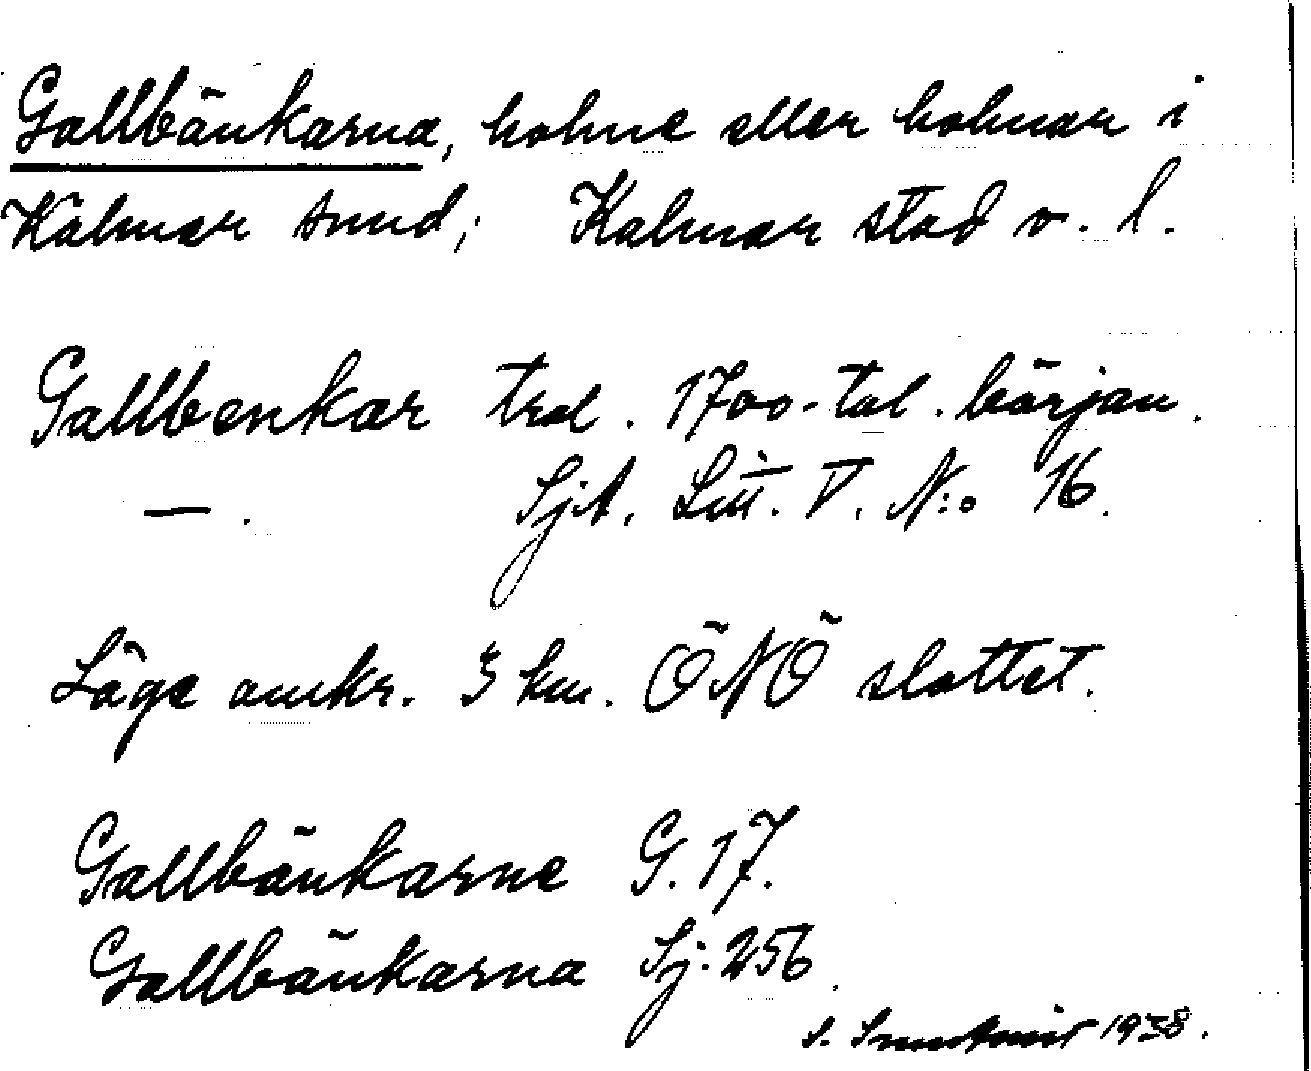 Gallbänkarna, holme eller holmar i
Kalmar sund; Kalmar stad o. l.
Gallbenkar trol. 1700-tal. början.
—. SjA. Litt. V. N:o 16.
Läge omkr. 3 km. ÖNÖ slottet.
Gallbänkarne G. 17.
Gallbänkarna Sj. 256.
S. 1938.